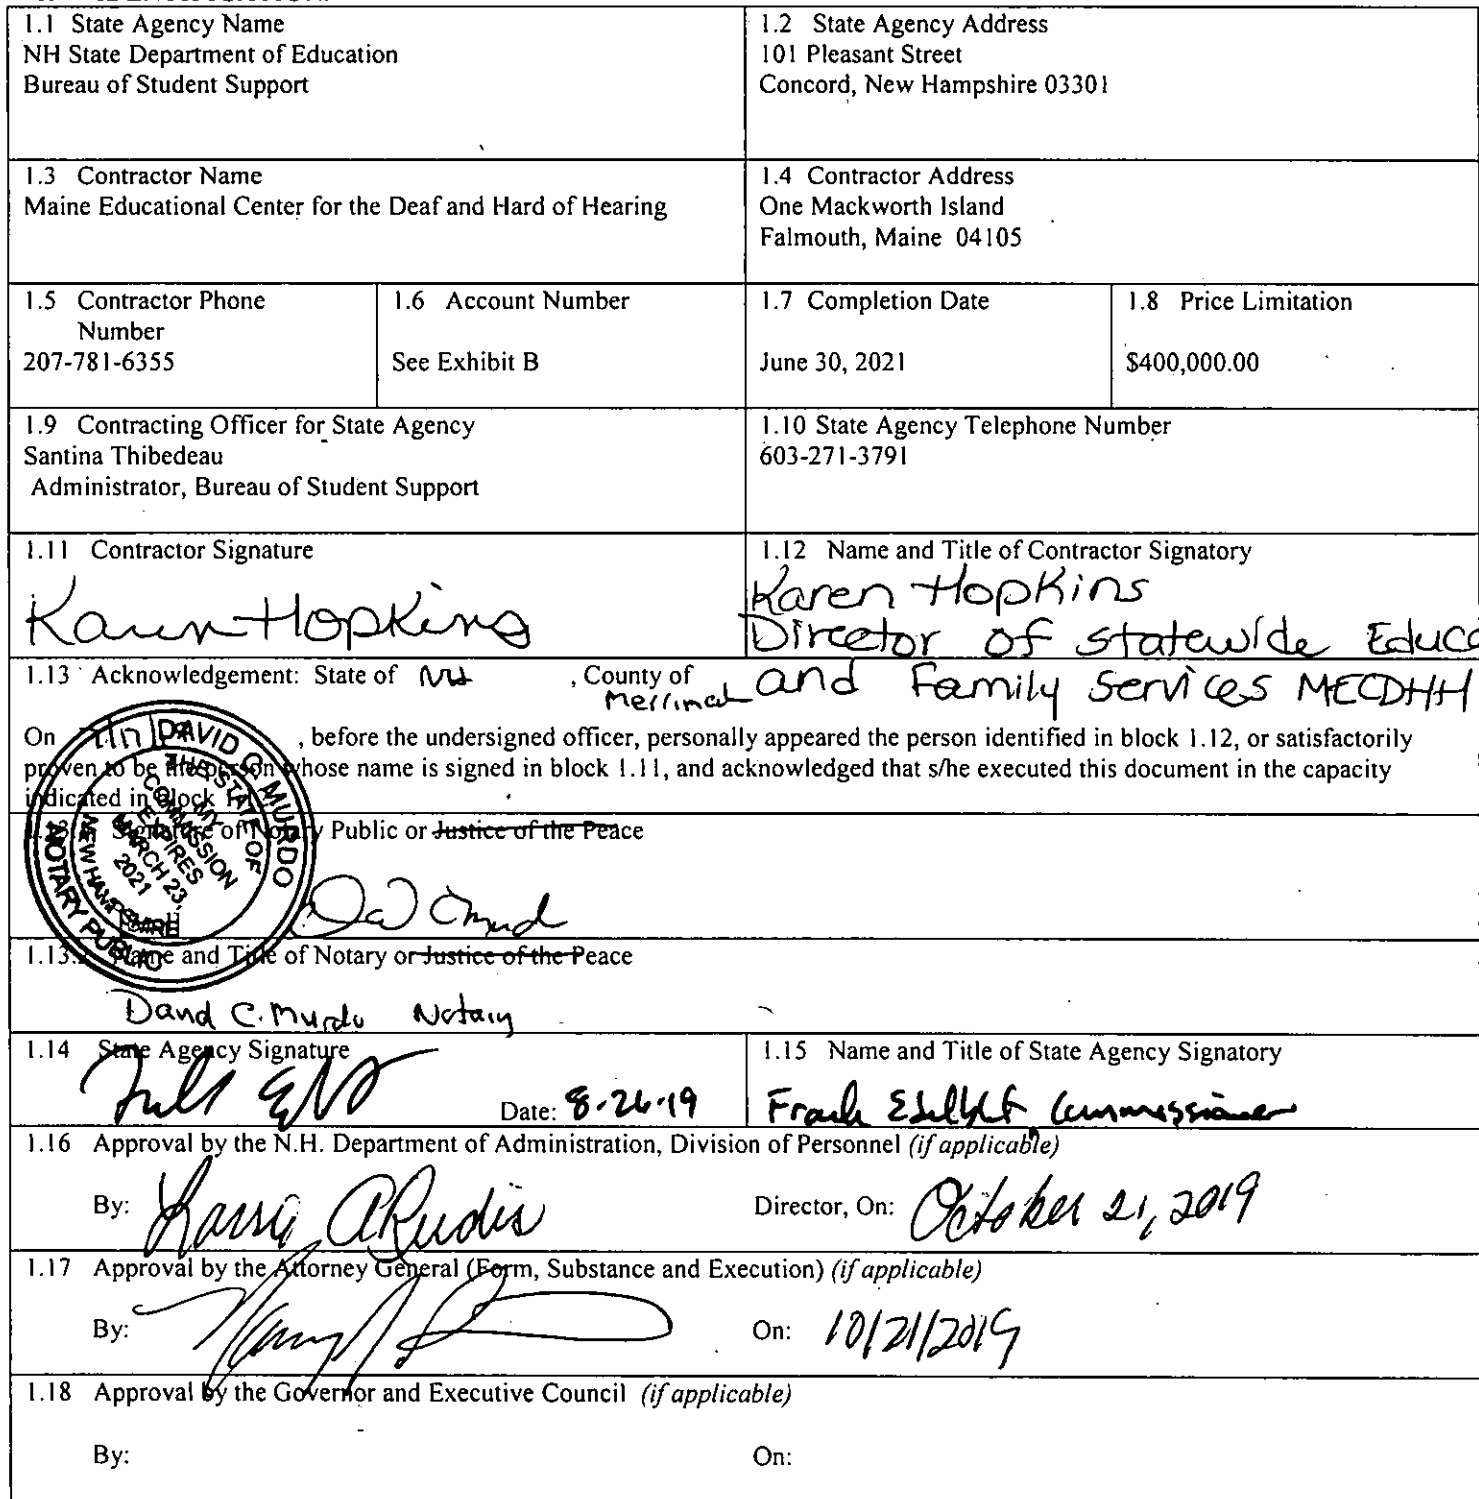 1.1 State Agency Name
NH State Department of Education
Bureau of Student Support
1.2 State Agency Address
101 Pleasant Street
Concord, New Hampshire 03301
1.3 Contractor Name
Maine Educational Center for the Deaf and Hard of Hearing
1.4 Contractor Address
One Mackworth Island
Falmouth, Maine 04105
1.5 Contractor Phone
Number
207-781-6355
1.6 Account Number
See Exhibit B
1.7 Completion Date
June 30, 2021
1.8 Price Limitation
$400,000.00
1.9 Contracting Officer for State Agency
Santina Thibedeau
Administrator, Bureau of Student Support
1.10 State Agency Telephone Number
603-271-3791
1.11 Contractor Signature
Karen Hopkins
1.12 Name and Title of Contractor Signatory
Karen Hopkins
Director of statewide Educa
and Family Services MECDHH
1.13 Acknowledgement: State of NH , County of Merrimack
On , before the undersigned officer, personally appeared the person identified in block 1.12, or satisfactorily
proven to be the person whose name is signed in block 1.11, and acknowledged that s/he executed this document in the capacity
indicated in block
DAVID C MURDO
THE STATE OF
MY
COMMISSION
EXPIRES
MARCH 23,
2021
NEW HAMPSHIRE
NOTARY PUBLIC
Signature of Notary Public or Justice of the Peace
1.13. Name and Title of Notary or Justice of the Peace
David C. Murdo Notary
1.14 State Agency Signature
Date: 8-26-19
1.15 Name and Title of State Agency Signatory
Frank Edelblut, Commissioner
1.16 Approval by the N.H. Department of Administration, Division of Personnel (if applicable)
By: Rudis
Director, On: October 21, 2019
1.17 Approval by the Attorney General (Form, Substance and Execution) (if applicable)
By:
On: 10/21/2019
1.18 Approval by the Governor and Executive Council (if applicable)
By:
On: